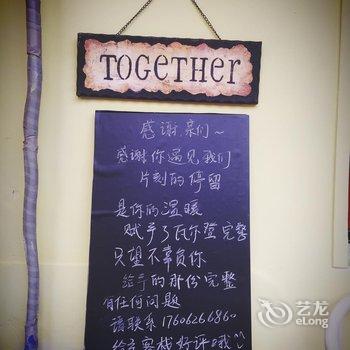 TOGETHER
感谢亲们~
感谢你遇见我们
片刻的停留
是你的温暖
赋予了瓦尔登完整
只望不辜负你
给予的那份完整
有任何问题
请联系17606266860
给予客栈好评哦
艺龙
eLong